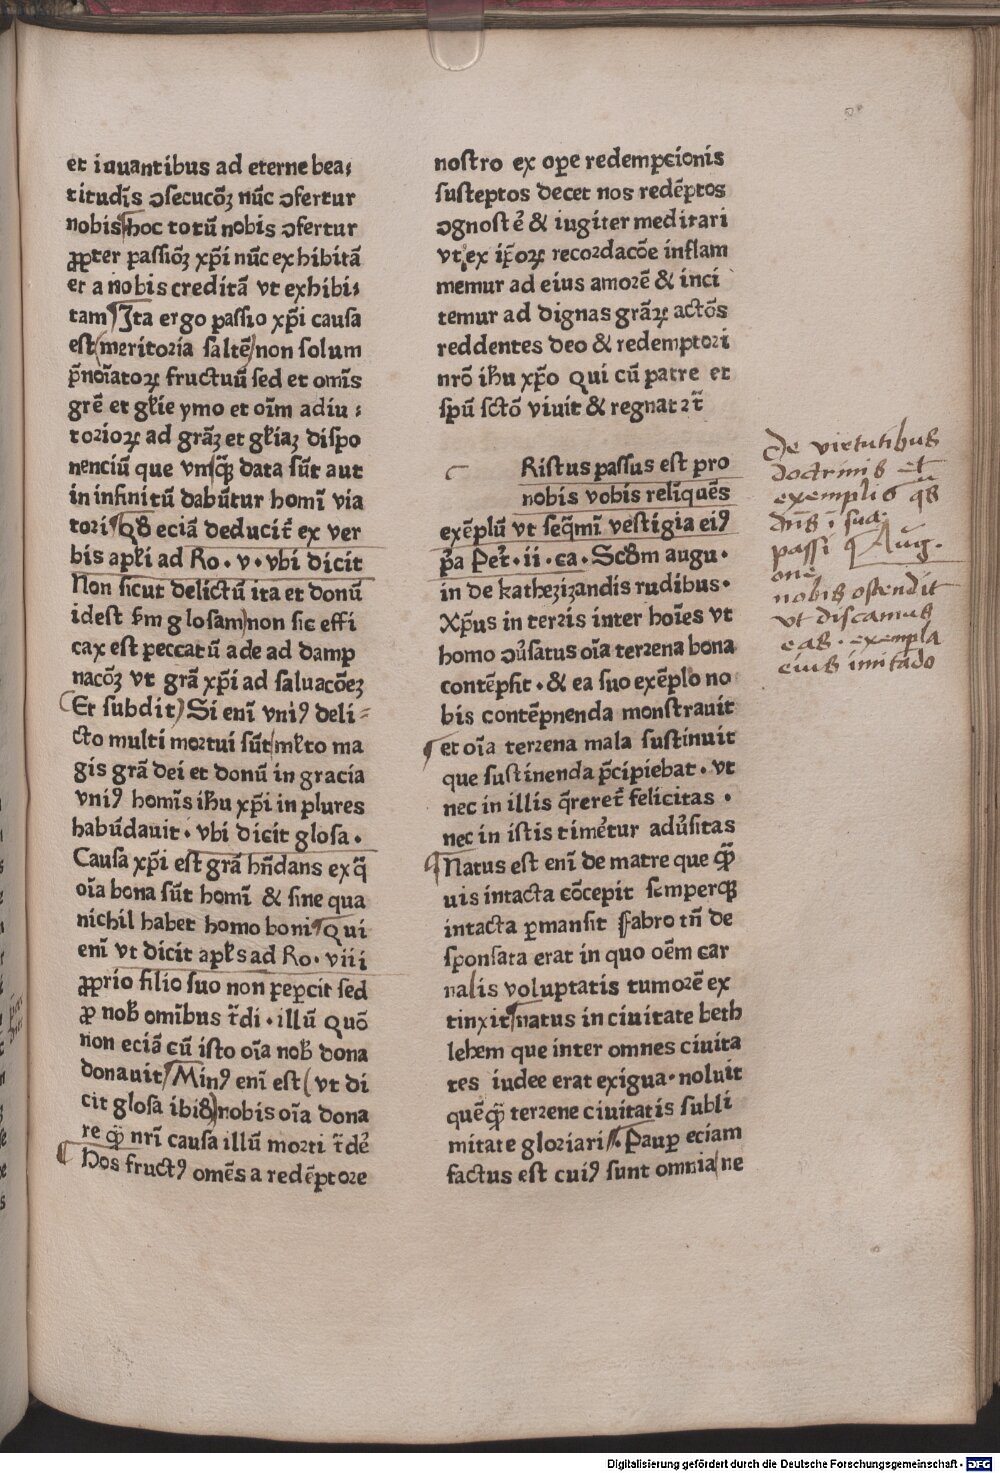 et iuuantibus ad eterne bea⸗
titudīs ↄsecucōꝫ nūc ↄfertur
nobis hoc totū nobis ↄfertur
ꝓpter passiōꝫ xp̄i nūc exhibitā
et a nobis creditā vt exhibi⸗
tam Ita ergo passio xp̄i causa
est (meritoria saltē) non solum
p̄noīatoꝝ fructuū sed et om̄is
grē et gl̄ie ymo et oīm adiu⸗
torioꝝ ad grāꝫ et gl̄iaꝫ dispo
nenciū que vnꝙꝫ data sūt aut
in infinitū dabūtur homī via
tori Qđ eciā deducit᷑ ex ver
bis apl̄i ad Ro . v . vbi dicit
Non sicut delictū ita et donū
idest ẜm glosam) non sic effi
cax est peccatū ade ad damp
nacōꝫ vt grā xp̄i ad saluacōeꝫ
(Et subdit) Si enī vniꝰ deli⸗
cto multi mortui sūt ml̄to ma
gis grā dei et donū in gracia
vniꝰ homīs ih̄u xp̄i in plures
habūdauit . vbi dicit glosa .
Causa xp̄i est grā hn̄dans ex q̄
oīa bona sūt homī & sine qua
nichil habet homo boni Qui
enī vt dicit apl̄s ad Ro . viii
ꝓprio filio suo non peꝑcit sed
ꝓ nob̄ omībus t̄di . illū Quō
non eciā cū isto oīa nob̄ dona
donauit Minꝰ enī est (vt di
cit glosa ibiđ) nobis oīa dona
re ꝙ̄ nr̄i causa illū morti t̄dē
Hos fructꝰ omēs a redēptore
nostro ex oꝑe redempcionis
susceptos decet nos redēptos
ↄgnoscē & iugiter meditari
vt ex ip̄oꝝ recordacōe inflam
memur ad eius amorē & inci
temur ad dignas grāꝝ actōs
reddentes deo & redemptori
nrō ih̄u xp̄o Qui cū patre et
sp̄u sctō viuit & regnat ⁊t̄
c Ristus passus est pro
nobis vobis relīquēs
exēplū vt seq̄mī vestigia eiꝰ
p̄a Pet᷑ . ii . ca . Scđm augu .
in de kathezizandis rudibus .
Xp̄us in terris inter hoīes vt
homo ↄūsatus oīa terrena bona
contēpsit . & ea suo exēplo no
bis contēpnenda monstrauit
et oīa terrena mala sustinuit
que sustinenda p̄cipiebat . vt
nec in illis q̄reret᷑ felicitas .
nec in istis timētur adūsitas
Natus est enī de matre que ꝙ̄
uis intacta cōcepit semperqꝫ
intacta ꝑmansit Fabro tn̄ de
sponsata erat in quo oēm car
nalis voluptatis tumorē ex
tinxit natus in ciuitate beth
lehem que inter omnes ciuita
tes iudee erat exigua . noluit
quēꝙ̄ terrene ciuitatis subli
mitate gloriari . Pauꝑ eciam
factus est cuiꝰ sunt omnia ne
De virtutibus
doctrinis et
exemplis q̄s
dn̄s ī sua
passi Aug.
one
nobis ostendit
vt discamus
eas . exempla
eius imitādo
Digitalisierung gefördert durch die Deutsche Forschungsgemeinschaft - DFG